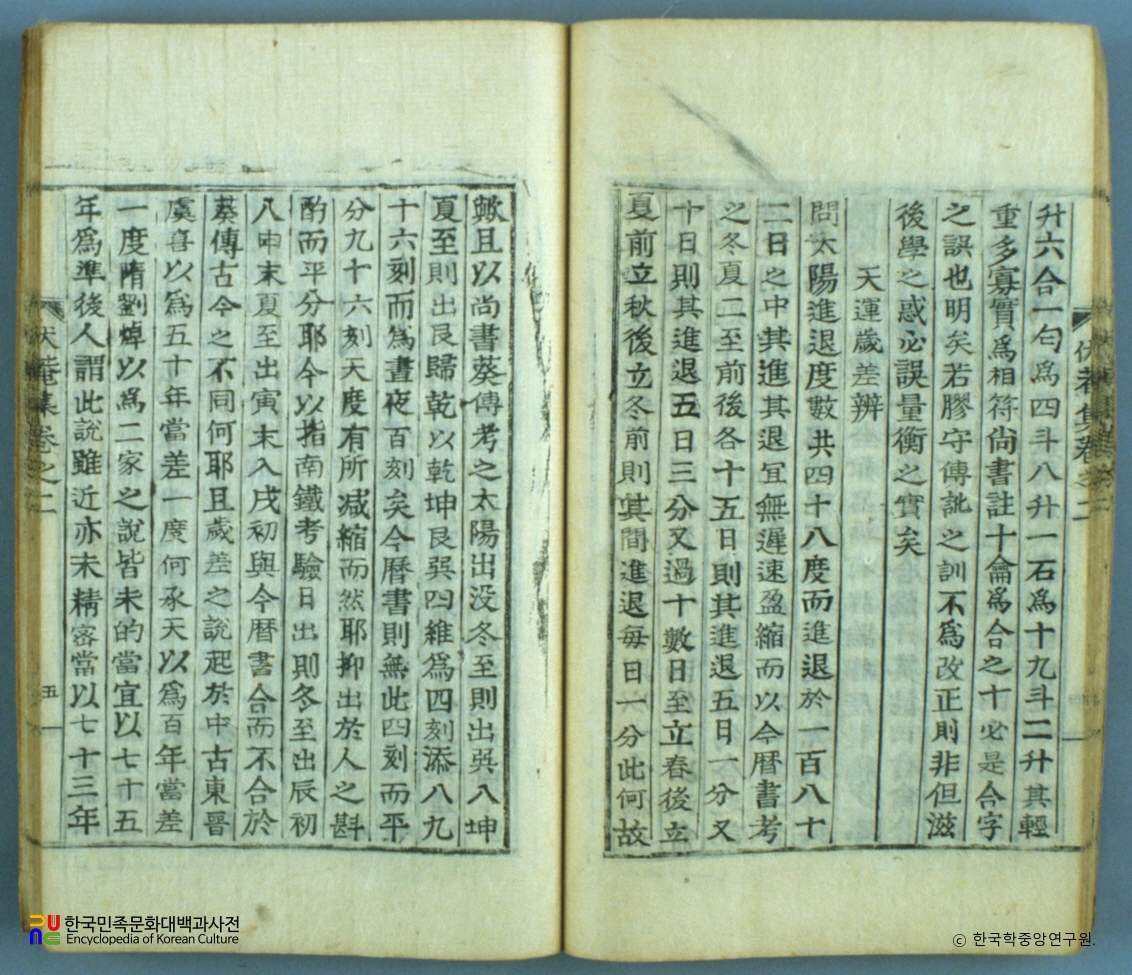 升六合一勺爲四斗八升一石爲十九斗二升其輕
重多寡實爲相符尙書註十龠爲合之十必是合字
之誤也明矣若膠守傳訛之訓不爲改正則非但滋
後學之惑必誤量衡之實矣
天運歲差辨
問太陽進退度數共四十八度而進退於一百八十
二日之中其進其退宜無遲速盈縮而以今曆書考
之冬夏二至前後各十五日則其進退五日一分又
十日則其進退五日三分又過十數日至立春後立
夏前立秋後立冬前則其間進退每日一分此何故
歟且以尚書蔡傳考之太陽出没冬至則出巽入坤
夏至則出艮歸乾以乾坤艮巽四維爲四刻添入九
十六刻而爲晝夜百刻矣今曆書則無此四刻而平
分九十六刻天度有所减縮而然耶抑出於人之斟
酌而平分耶今以指南鐵考驗日出則冬至出辰初
入申末夏至出寅末入戌初與今曆書合而不合於
蔡傳古今之不同何耶且歲差之說起於中古東晉
虞喜以爲五十年當差一度何承天以爲百年當差
一度隋劉焯以爲二家之說皆未的當宜以七十五
年爲準後人謂此說雖近亦未精密當以七十三年
伏菴集卷之二
五一
한국민족문화대백과사전
Encyclopedia of Korean Culture
ⓒ 한국학중앙연구원.